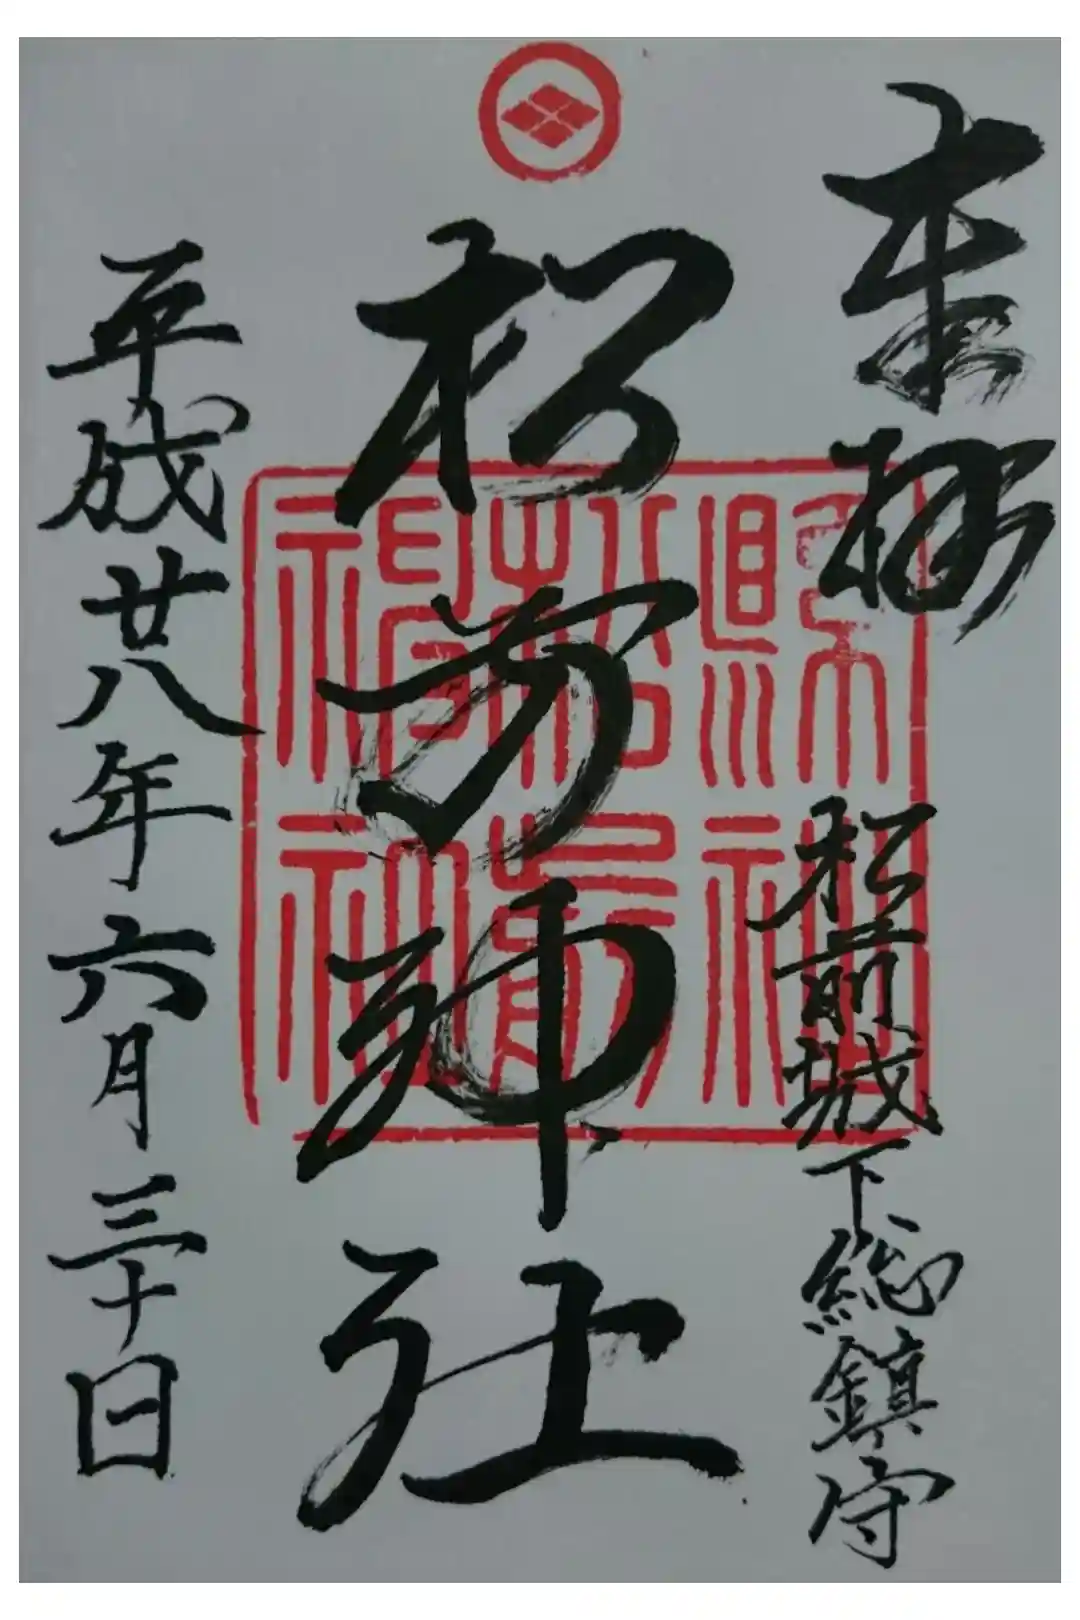 奉拝
松前城下総鎮守
松前神社
平成廿八年六月三十日
縣社
松前
神社